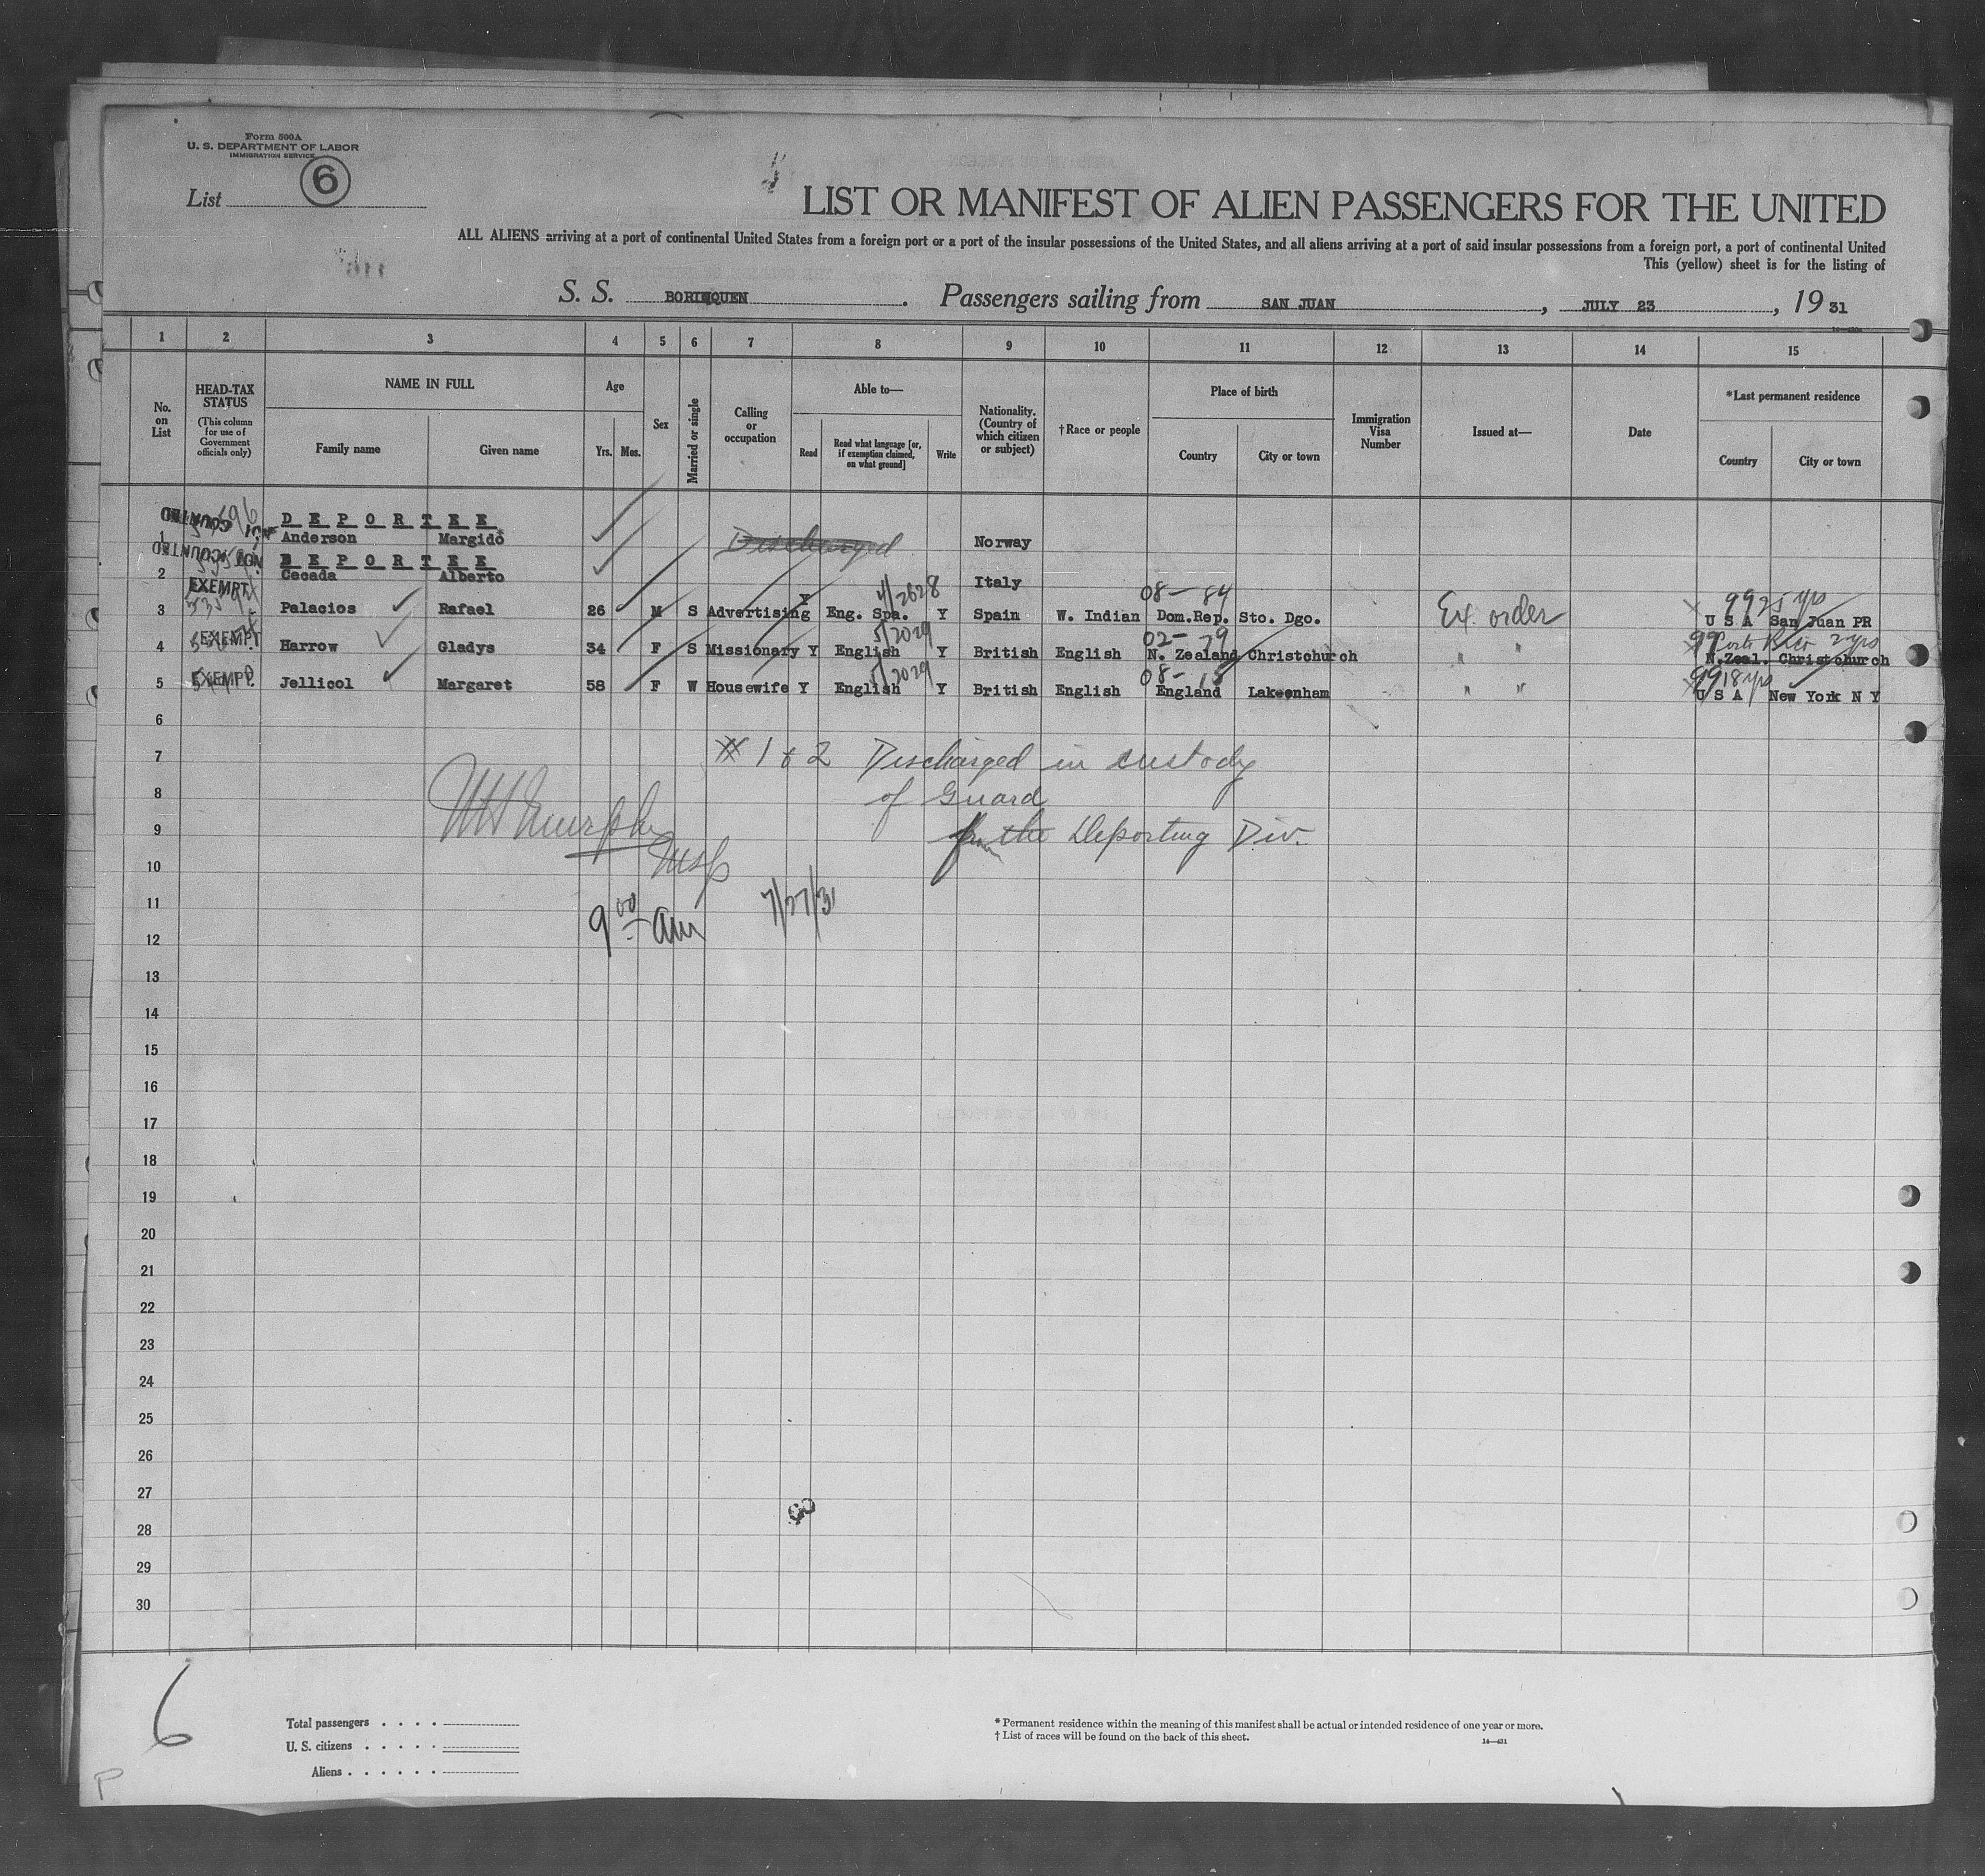 Form 500A
U. S. DEPARTMENT OF LABOR
IMMIGRATION SERVICE
List 6
LIST OR MANIFEST OF ALIEN PASSENGERS FOR THE UNITED
ALL ALIENS arriving at a port of continental United States from a foreign port or a port of the insular possessions of the United States, and all aliens arriving at a port of said insular possessions from a foreign port, a port of continental United
This (yellow) sheet is for the listing of
S. S. BORINQUEN. Passengers sailing from SAN JUAN, JULY 23, 1931
1 2 3 4 5 6 7 8 9 10 11 12 13 14 15
No. on List
HEAD-TAX STATUS (This column for use of Government officials only)
NAME IN FULL
Family name Given name
Age
Yrs. Mos.
Sex
Married or single
Calling or occupation
Able to—
Read
Read what language [or, if exemption claimed, on what ground]
Write
Nationality. (Country of which citizen or subject)
†Race or people
Place of birth
Country City or town
Immigration Visa Number
Issued at—
Date
*Last permanent residence
Country City or town
DEPORTEE
1 Anderson Margido Discharged Norway
DEPORTEE
2 Cecada Alberto Italy
EXEMPT 4/2628 08- 84 99 25 yrs
3 Palacios Rafael 26 M S Advertising Y Eng. Spa. Y Spain W. Indian Dom.Rep. Sto. Dgo. Ex. order U S A San Juan PR
EXEMPT 5/2029 02- 79 99 Porto Rico 2 yrs
4 Harrow Gladys 34 F S Missionary Y English Y British English N. Zealand Christchurch " " N.Zeal. Christchurch
EXEMPT 5/2029 08- 15 99 18 yrs
5 Jellicol Margaret 58 F W Housewife Y English Y British English England Lakeenham " " U S A New York N Y
6
7 # 1 & 2 Discharged in custody
8 of Guard
9 from the Deporting Div.
10 Insp
11 9 00 am 7/27/31
12
13
14
15
16
17
18
19
20
21
22
23
24
25
26
27
28
29
30
6
P
Total passengers . . . .
U. S. citizens . . . . .
Aliens . . . . . .
* Permanent residence within the meaning of this manifest shall be actual or intended residence of one year or more.
† List of races will be found on the back of this sheet.
14—431